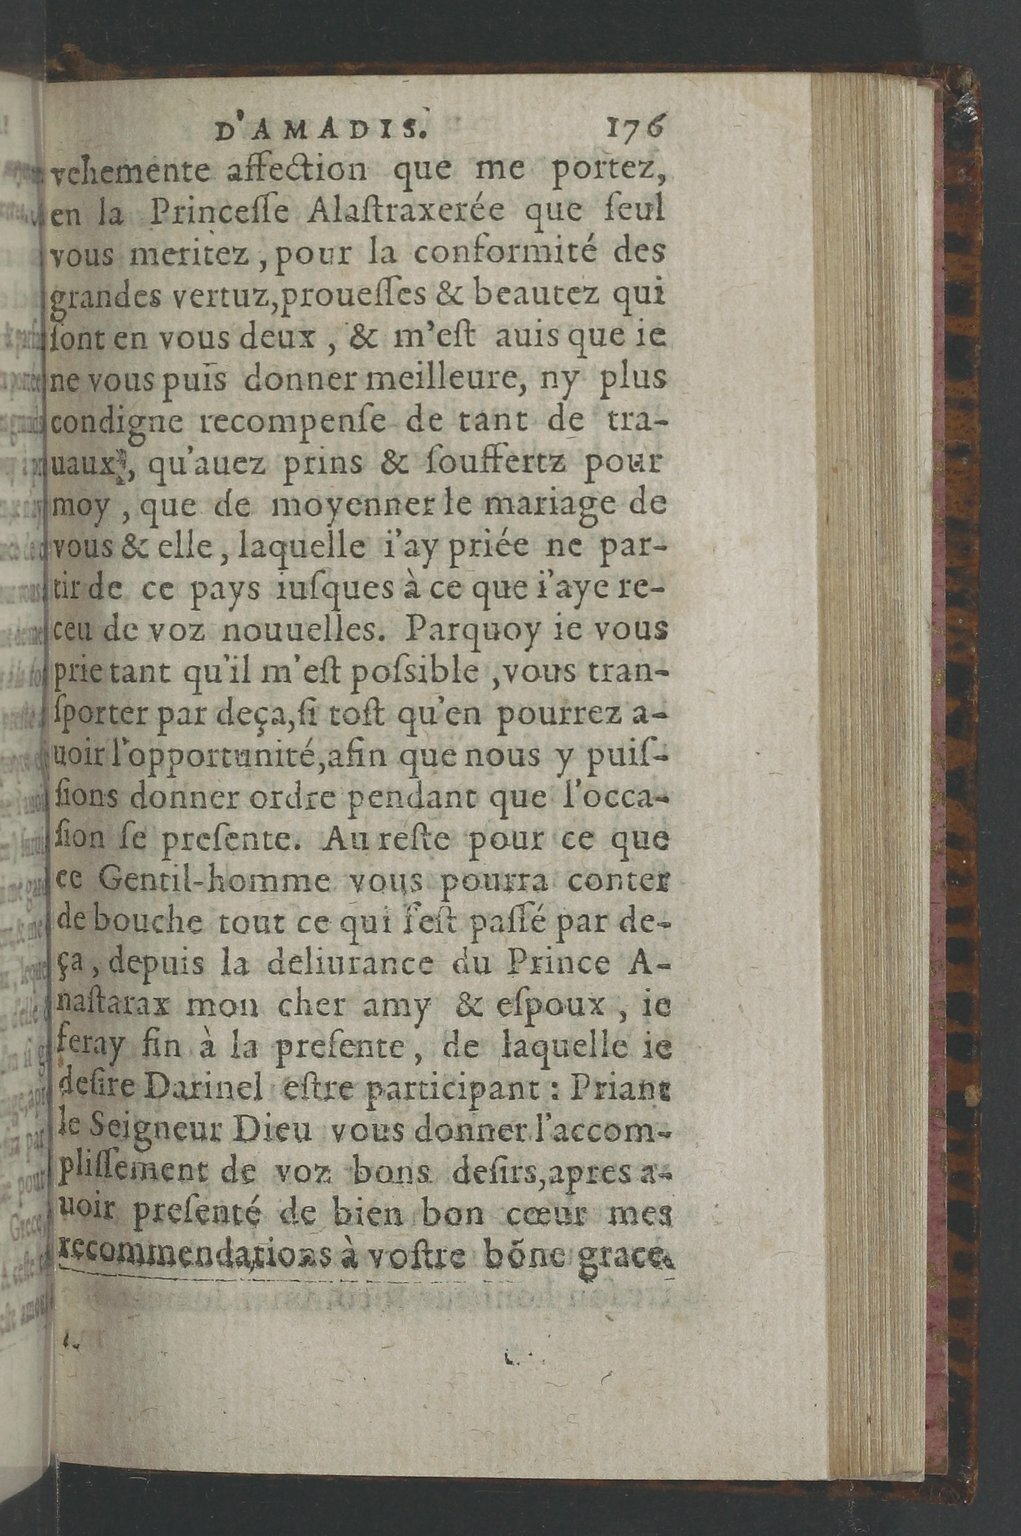 D'AMADIS. 176
vehemente affection que me portez,
en la Princeſſe Alaſtraxerée que ſeul
vous meritez, pour la conformité des
grandes vertuz, proueſſes & beautez qui
ſont en vous deux, & m'eſt auis que ie
ne vous puis donner meilleure, ny plus
condigne recompenſe de tant de tra-
uaux, qu'auez prins & ſouffertz pour
moy, que de moyenner le mariage de
vous & elle, laquelle i'ay priée ne par-
tir de ce pays iuſques à ce que i'aye re-
ceu de voz nouuelles. Parquoy ie vous
prie tant qu'il m'eſt poſsible, vous tran-
ſporter par deça, ſi toſt qu'en pourrez a-
uoir l'opportunité, afin que nous y puiſ-
ſions donner ordre pendant que l'occa-
ſion ſe preſente. Au reſte pour ce que
ce Gentil-homme vous pourra conter
de bouche tout ce qui ſ'eſt paſſé par de-
ça, depuis la deliurance du Prince A-
naſtarax mon cher amy & eſpoux, ie
feray fin à la preſente, de laquelle ie
deſire Darinel eſtre participant: Priant
le Seigneur Dieu vous donner l'accom-
pliſſement de voz bons deſirs, apres a-
uoir preſenté de bien bon cœur mes
recommendations à voſtre bõne grace.